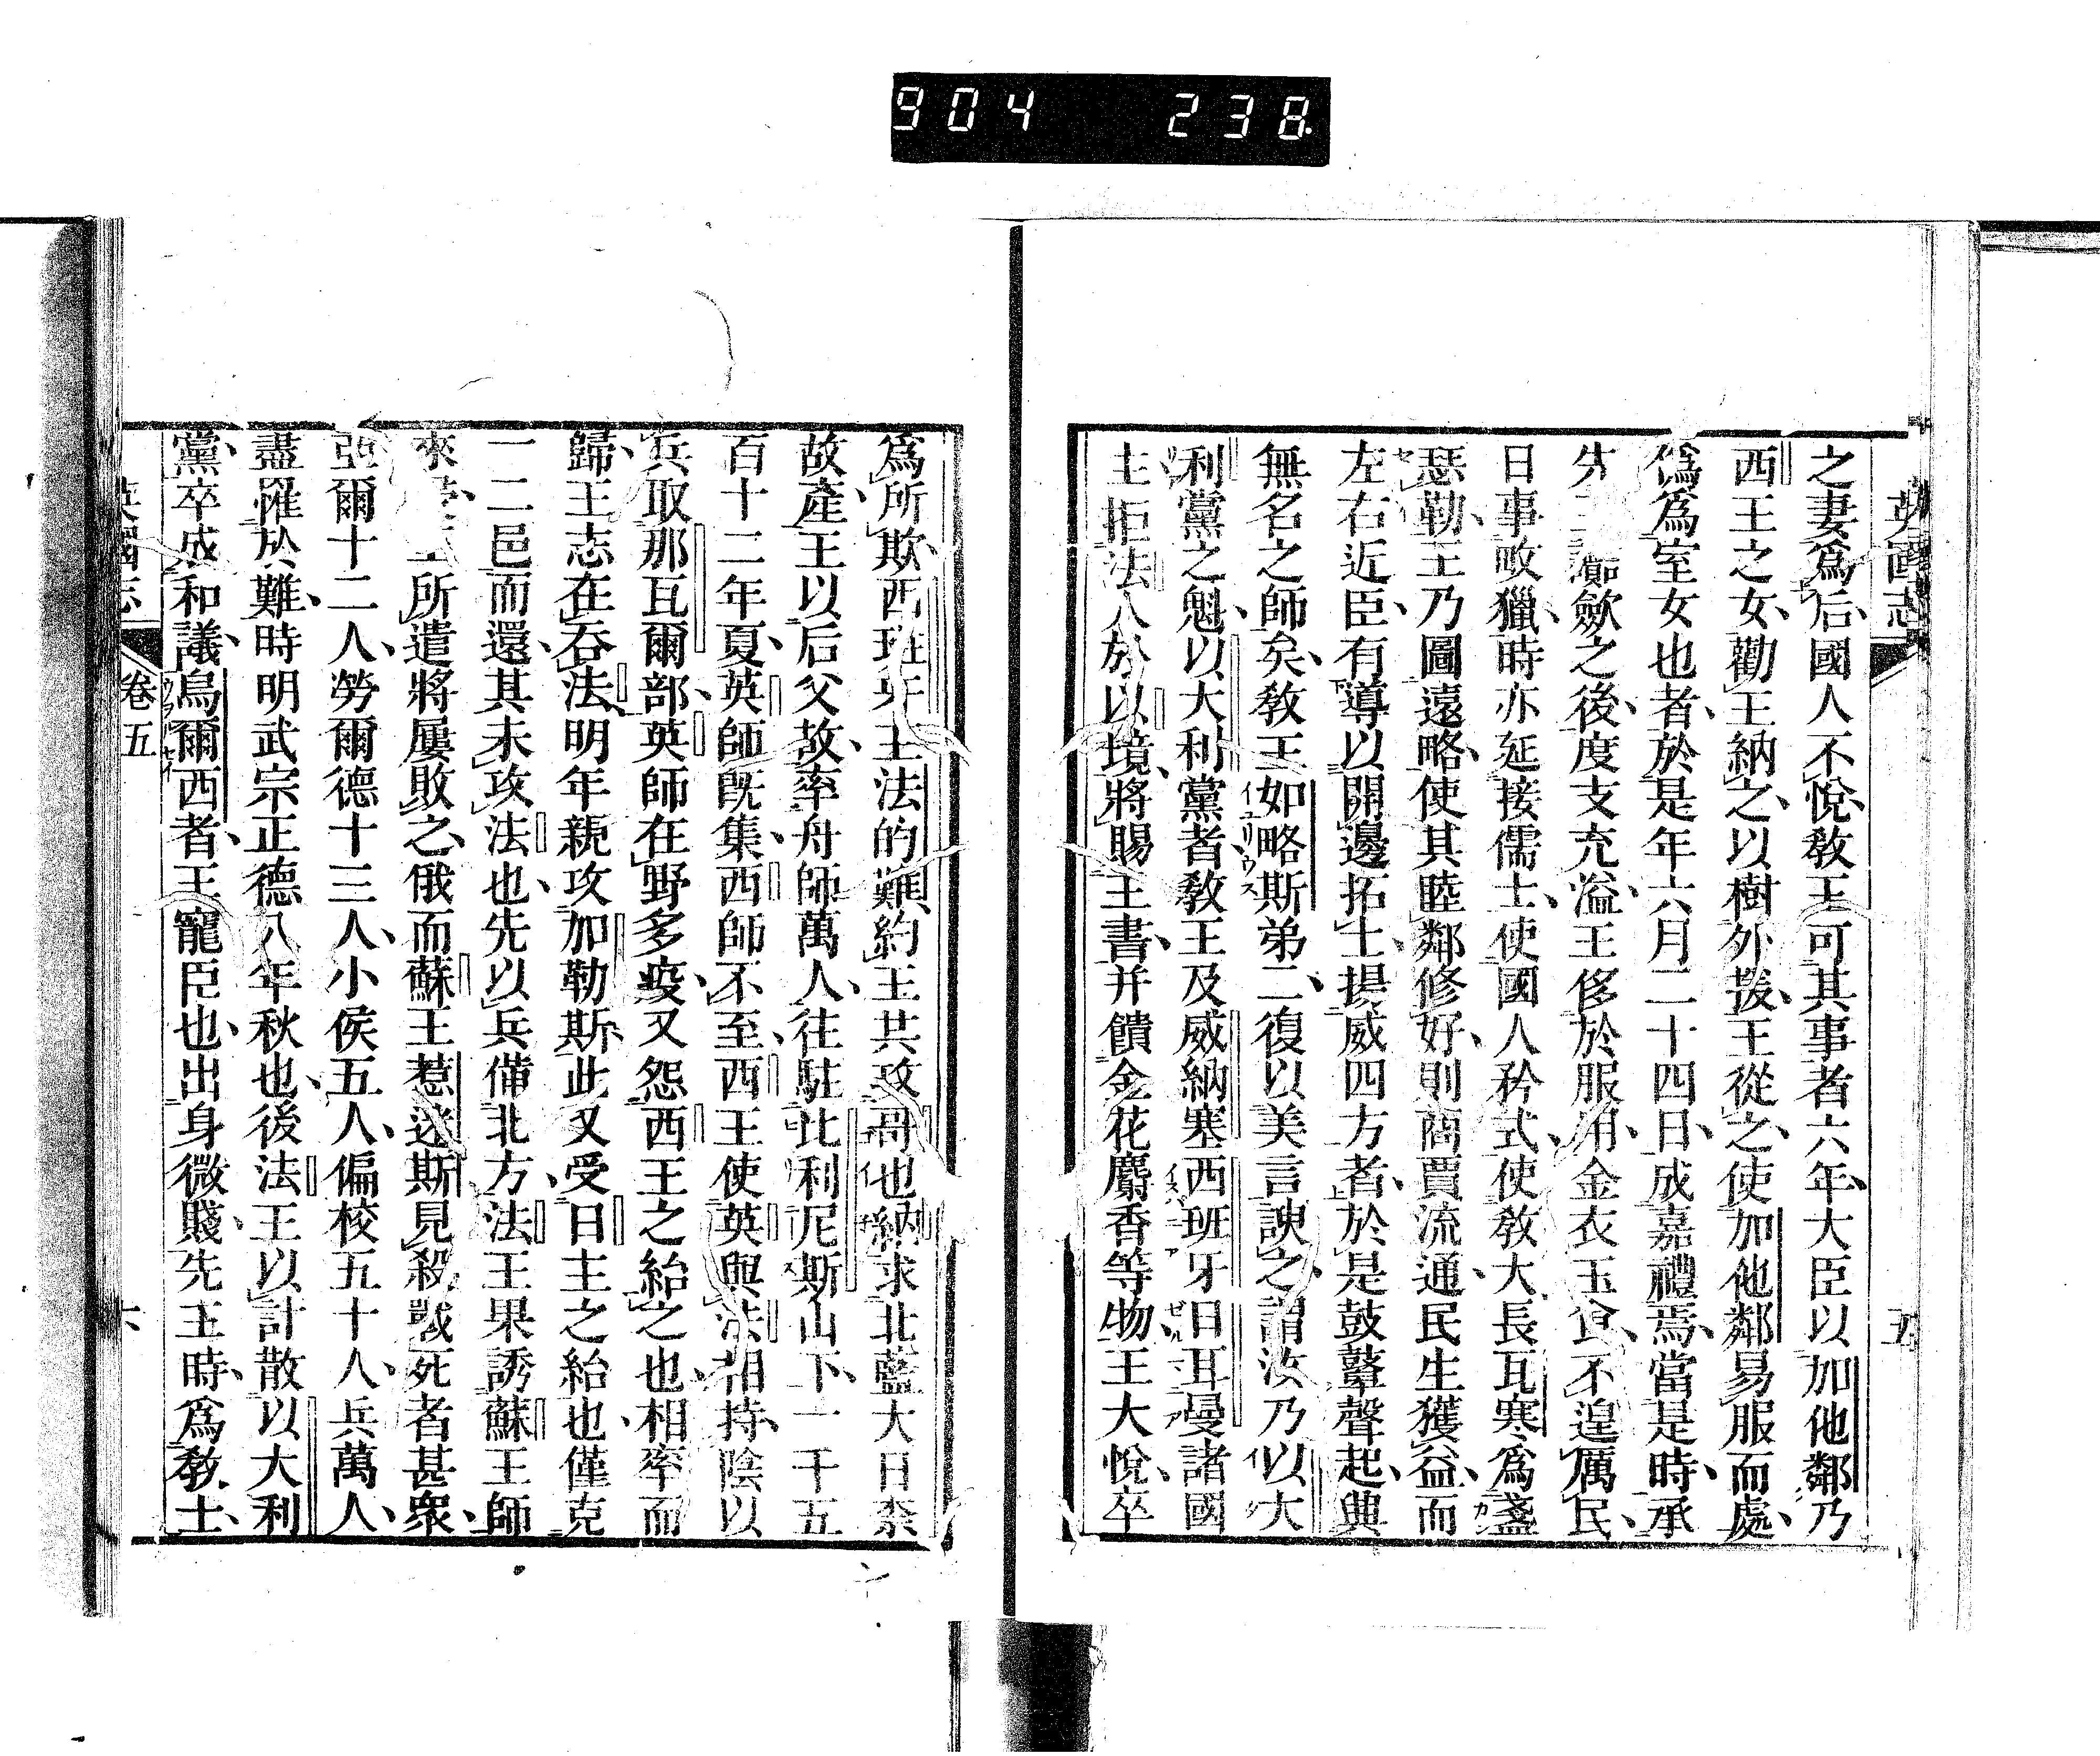 904 238
英國志 五
之妻爲后、國人不悅、敎王可其事者六年、大臣以加他鄰乃
西王之女、勸王納之、以樹外援、王從之、使加他鄰易服而處、
僞爲室女也者、於是年六月二十四日、成嘉禮焉、當是時、承
先 歛之後、度支充溢、王侈於服用、金衣玉食、不遑厲民、
日事畋獵、時亦延接儒士、使國人矜式、使敎大長瓦寒爲盞
瑟勒、王乃圖遠略、使其睦鄰修好、則商賈流通、民生獲益、而
左右近臣、有導以開邊拓土、揚威四方者、於是鼓鼙聲起、典
無名之師矣、敎王如略斯弟二、復以美言諛之、謂汝乃以大
利黨之魁、以大利黨者、敎王及威納塞西班牙日耳曼諸國
主拒法人於以境、將賜王書、并饋金花麝香等物、王大悅、卒
爲所欺、西班牙王法的難、約王共攻哥也納、求北藍大日柰
故產、王以后父故、率舟師萬人、往駐比利尼斯山下、一千五
百十二年夏、英師旣集、西師不至、西王使英與法相持、陰以
兵取那瓦爾部、英師在野多疫、又怨西王之紿之也、相率而
歸、王志在吞法、明年親攻加勒斯、此又受日主之紿也、僅克
一二邑而還、其未攻法也、先以兵備北方、法王果誘蘇王師
來 所遣將屢敗之、俄而蘇王惹迷斯見殺、戰死者甚衆、
亞爾十二人、勞爾德十三人、小侯五人、偏校五十人、兵萬人、
盡罹於難、時明武宗正德八年秋也、後法王以計散以大利
黨、卒成和議、烏爾西者、王寵臣也、出身微賤、先王時、爲敎士、
英國志 卷五 六